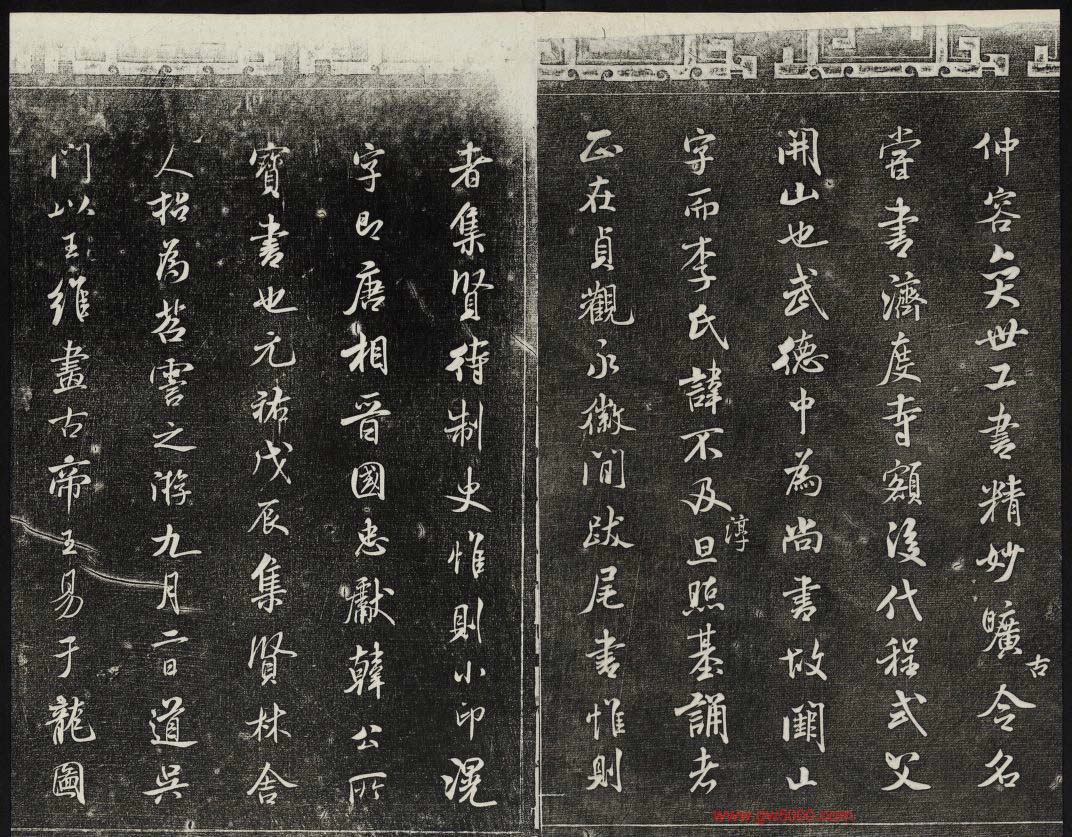 仲容奕世工書精妙曠古令名
嘗書濟度寺額後代程式父
開山也武德中為尚書故闕山
字而李氏諱不及淳旦照基誦者
正在貞觀永徽間跋尾書惟則
者集賢待制史惟則小印滉
字即唐相晉國忠獻韓公所
寶書也元祐戊辰集賢林舍
人招為苕霅之游九月二日道吳
門以王維畫古帝王易于龍圖
www.gw5000.com